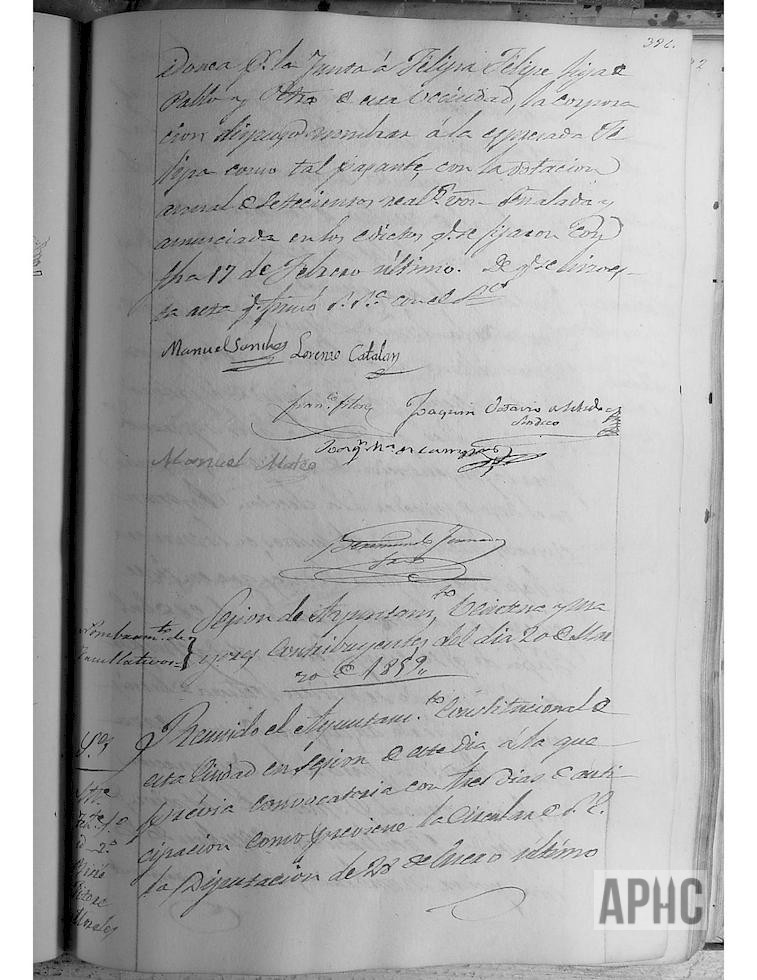 396.
idonea p.r la Junta á Felipa Felipe hija de
Pablo y Otra de esta Vecindad, la corpora
cion dispuso nombrar á la espresada Fe
lipa como tal pasante, con la dotacion
anual de setecientos real.s von. señalada y
anunciada en los edictos q.e se fijaron con
fha 17 de Febrero último. De q.e se hizo es-
ta acta q.e firmó S. S.a con el S.
Manuel Sanchez Lorenzo Catalan
Fran.co Flores Joaquin Octavio de Toledo
Sindico
Joaq.n M.a
Manuel Mateo
Bermundo
Srio
Nombram.to de
Facultativos
Sesion de Ayuntam.to Veintena y ma
yores Contribuyentes del dia 20 de Mar
zo de 1859.
Reunido el Ayuntam.to Constitucional de
esta Ciudad en sesion de este dia á la que
prévia convocatoria con tres dias de anti
cipacion como previene la Circular de S. E.
la Diputacion de 28 de Enero último
S.res
Morales
APHC